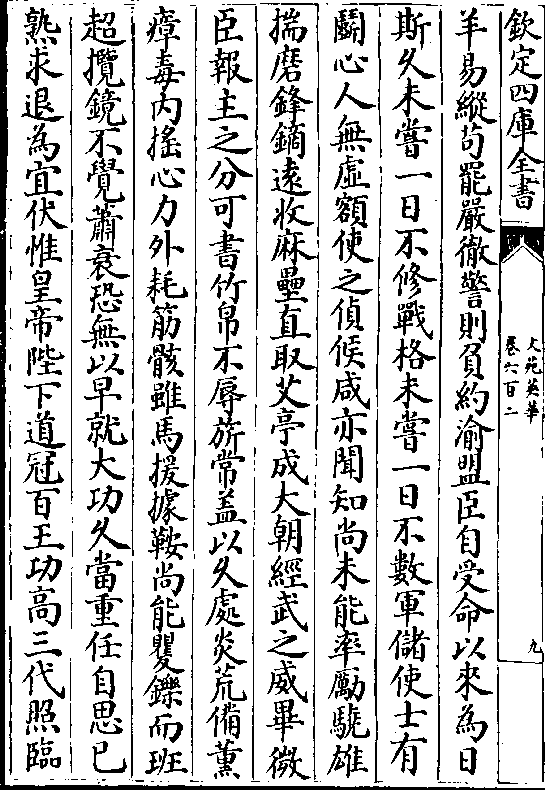 欽定四庫全書
文苑英華
卷六百二
九
羊易縱苟罷嚴徹警則負約渝盟臣自受命以來為日
斯久未嘗一日不修戰格未嘗一日不數軍儲使士有
鬬心人無虛額使之偵候咸亦聞知尚未能率勵驍雄
揣磨鋒鏑遠收麻壘直取艾亭成大朝經武之威畢微
臣報主之分可書竹帛不辱旂常盖以久處炎荒備薰
瘴毒内搖心力外耗筋骸雖馬援據鞍尚能矍鑠而班
超攬鏡不覺蕭衰恐無以早就大功久當重任自思已
熟求退為宜伏惟皇帝陛下道冠百王功高三代照臨